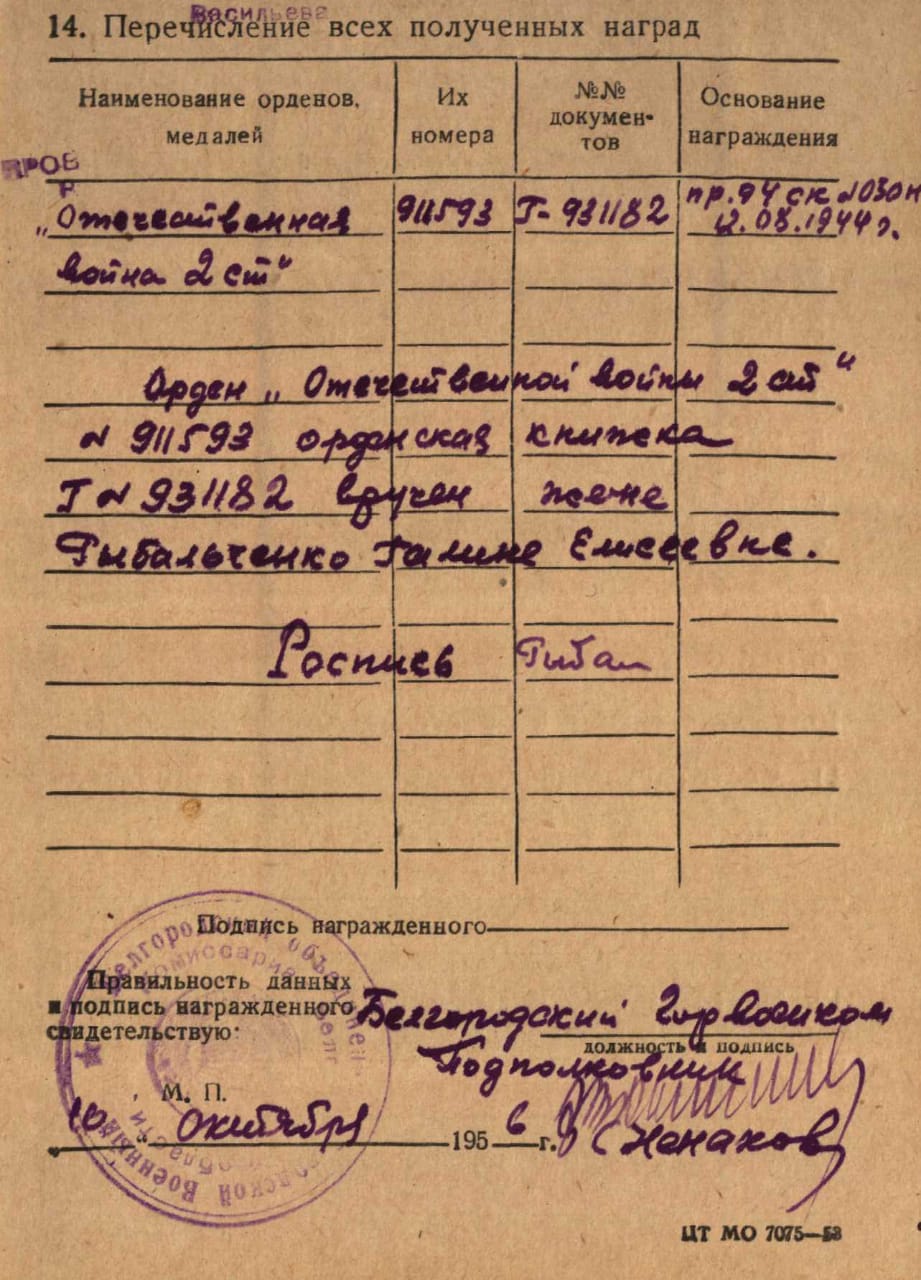 Васильева
14. Перечисление всех полученных наград
Наименование орденов, медалей
Их номера
№№ докумен-тов
Основание награждения
„Отечественная 911593 Г- 931182 пр. 94 ск №030н
война 2 ст" 12.08.1944 г.
Орден „Отечественной войны 2 ст"
№ 911593 орденская книжка
Г № 931182 вручен жене
Рыбальченко Галине Елисеевне.
Роспись Рыбал
Подпись награжденного
Правильность данных
и подпись награжденного
свидетельствую:
Белгородский Горвоенком
должность и подпись
Подполковник
М. П.
10 „ октября 1956 г. (Ненахов)
ЦТ МО 7075—53